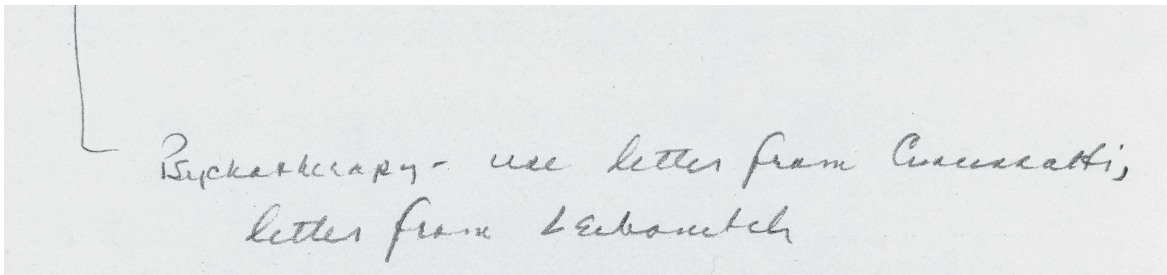 Psychotherapy - use letter from Cincinnatti,
letter from Leibovitch